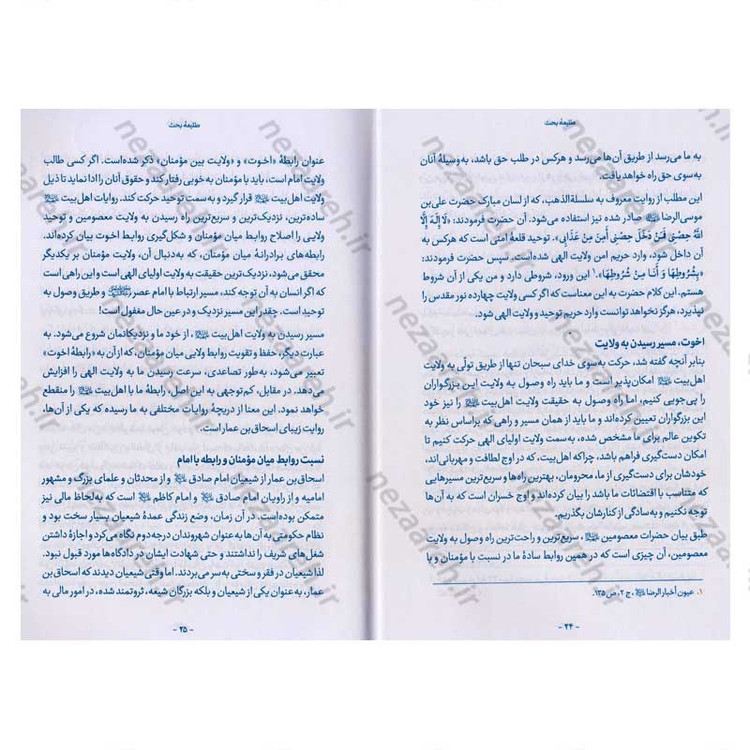 طلیعهٔ بحث
به ما می‌رسد از طریق آن‌ها می‌رسد و هرکس در طلب حق باشد، به‌وسیلهٔ آنان
به سوی حق راه خواهد یافت.
این مطلب از روایت معروف به سلسلة‌الذهب، که از لسان مبارک حضرت علی‌بن
موسی‌الرضا صادر شده نیز استفاده می‌شود. آن حضرت فرمودند: «لَا إِلَهَ إِلَّا
اللَّهُ حِصْنِي فَمَنْ دَخَلَ حِصْنِي أَمِنَ مِنْ عَذَابِي». توحید قلعهٔ امنی است که هرکس به
آن داخل شود، وارد حریم امن ولایت الهی شده‌است. سپس حضرت فرمودند:
«بِشُرُوطِهَا وَ أَنَا مِنْ شُرُوطِهَا».۱ این ورود، شروطی دارد و من یکی از آن شروط
هستم. این کلام حضرت به این معناست که اگر کسی ولایت چهارده نور مقدس را
نپذیرد، هرگز نخواهد توانست وارد حریم توحید و ولایت الهی شود.
اخوت، مسیر رسیدن به ولایت
بنابر آنچه گفته شد، حرکت به‌سوی خدای سبحان تنها از طریق تولّی به ولایت
اهل‌بیت امکان‌پذیر است و ما باید راه وصول به ولایت این بزرگواران
را پی‌جویی کنیم، اما راه وصول به حقیقت ولایت اهل‌بیت را نیز خود
این بزرگواران تعیین کرده‌اند و ما باید از همان مسیر و راهی که براساس نظر به
تکوین عالم برای ما مشخص شده، به‌سمت ولایت اولیای الهی حرکت کنیم تا
امکان دست‌گیری فراهم باشد، چراکه اهل‌بیت، که در اوج لطافت و مهربانی‌اند،
خودشان برای دست‌گیری از ما، محرومان، بهترین راه‌ها و سریع‌ترین مسیرهایی
که متناسب با اقتضائات ما باشد را بیان کرده‌اند و اوج خسران است که به آن‌ها
توجه نکنیم و به‌سادگی از کنارشان بگذریم.
طبق بیان حضرات معصومین، سریع‌ترین و راحت‌ترین راه وصول به ولایت
معصومین، آن چیزی است که در همین روابط سادهٔ ما در نسبت با مؤمنان و با
۱. عیون أخبار الرضا، ج ۲، ص ۱۳۵.
- ۲۴ -
طلیعهٔ بحث
عنوان رابطهٔ «اخوت» و «ولایت بین مؤمنان» ذکر شده‌است. اگر کسی طالب
ولایت امام است، باید با مؤمنان به‌خوبی رفتار کند و حقوق آنان را ادا نماید تا ذیل
ولایت اهل‌بیت قرار گیرد و به سمت توحید حرکت کند. روایات اهل‌بیت
ساده‌ترین، نزدیک‌ترین و سریع‌ترین راه رسیدن به ولایت معصومین و توحید
ولایی را اصلاح روابط میان مؤمنان و شکل‌گیری روابط اخوت بیان کرده‌اند.
رابطه‌های برادرانهٔ میان مؤمنان، که به‌دنبال آن، ولایت مؤمنان بر یکدیگر
محقق می‌شود، نزدیک‌ترین حقیقت به ولایت اولیای الهی است و این راهی است
که اگر انسان به آن توجه کند، مسیر ارتباط با امام عصر و طریق وصول به
توحید است. چقدر این مسیر نزدیک و در عین حال مغفول است!
مسیر رسیدن به ولایت اهل‌بیت، از خود ما و نزدیکانمان شروع می‌شود. به
عبارت دیگر، حفظ و تقویت روابط ولایی میان مؤمنان، که از آن به «رابطهٔ اخوت»
تعبیر می‌شود، به‌طور تصاعدی، سرعت رسیدن ما به ولایت الهی را افزایش
می‌دهد. در مقابل، کم‌توجهی به این اصل، رابطهٔ ما با اهل‌بیت را منقطع
خواهد نمود. این معنا از دریچهٔ روایات مختلفی به ما رسیده که یکی از آن‌ها،
روایت زیبای اسحاق‌بن عمار است.
نسبت روابط میان مؤمنان و رابطه با امام
اسحاق‌بن عمار از شیعیان امام صادق و از محدثان و علمای بزرگ و مشهور
امامیه و از راویان امام صادق و امام کاظم است که به‌لحاظ مالی نیز
متمکن بوده‌است. در آن زمان، وضع زندگی عمدهٔ شیعیان بسیار سخت بود و
نظام حکومتی به آن‌ها به‌عنوان شهروندان درجه‌دوم نگاه می‌کرد و اجازهٔ داشتن
شغل‌های شریف را نداشتند و حتی شهادت ایشان در دادگاه‌ها مورد قبول نبود.
لذا شیعیان در فقر و سختی به‌سر می‌بردند. اما وقتی شیعیان دیدند که اسحاق‌بن
عمار، به‌عنوان یکی از شیعیان و بلکه بزرگان شیعه، ثروتمند شده، در امور مالی به
- ۲۵ -
nezaareh.ir
nezaareh.ir
nezaareh.ir
nezaareh.ir